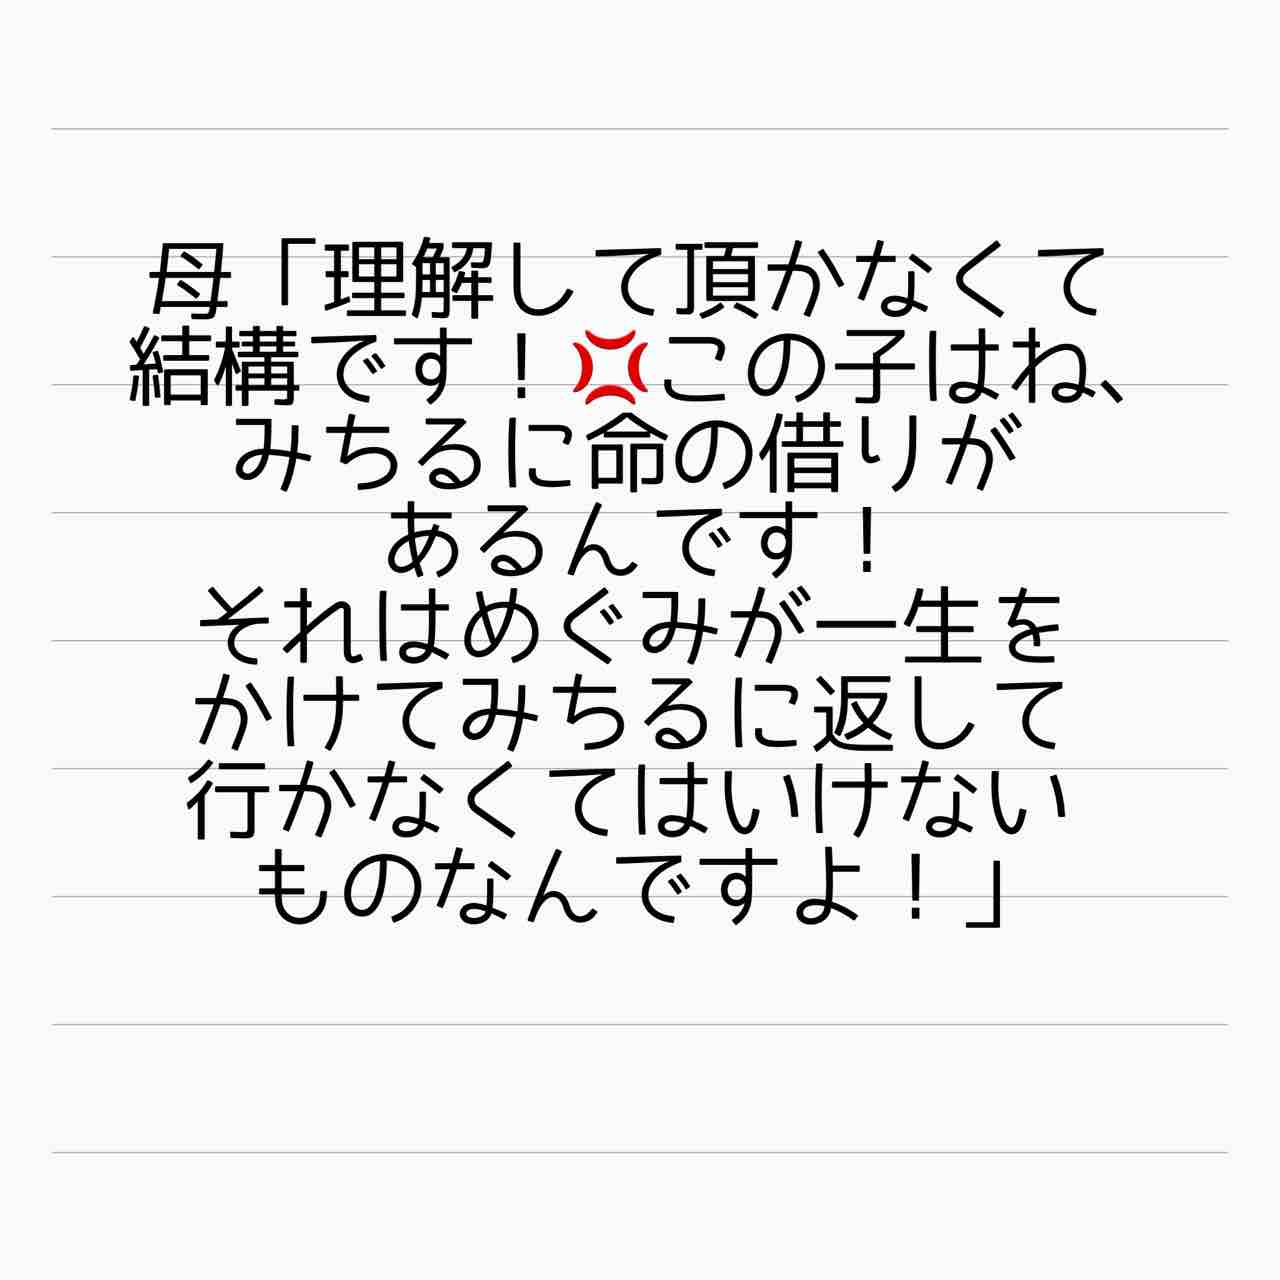 母「理解して頂かなくて
結構です！💢この子はね、
みちるに命の借りが
あるんです！
それはめぐみが一生を
かけてみちるに返して
行かなくてはいけない
ものなんですよ！」